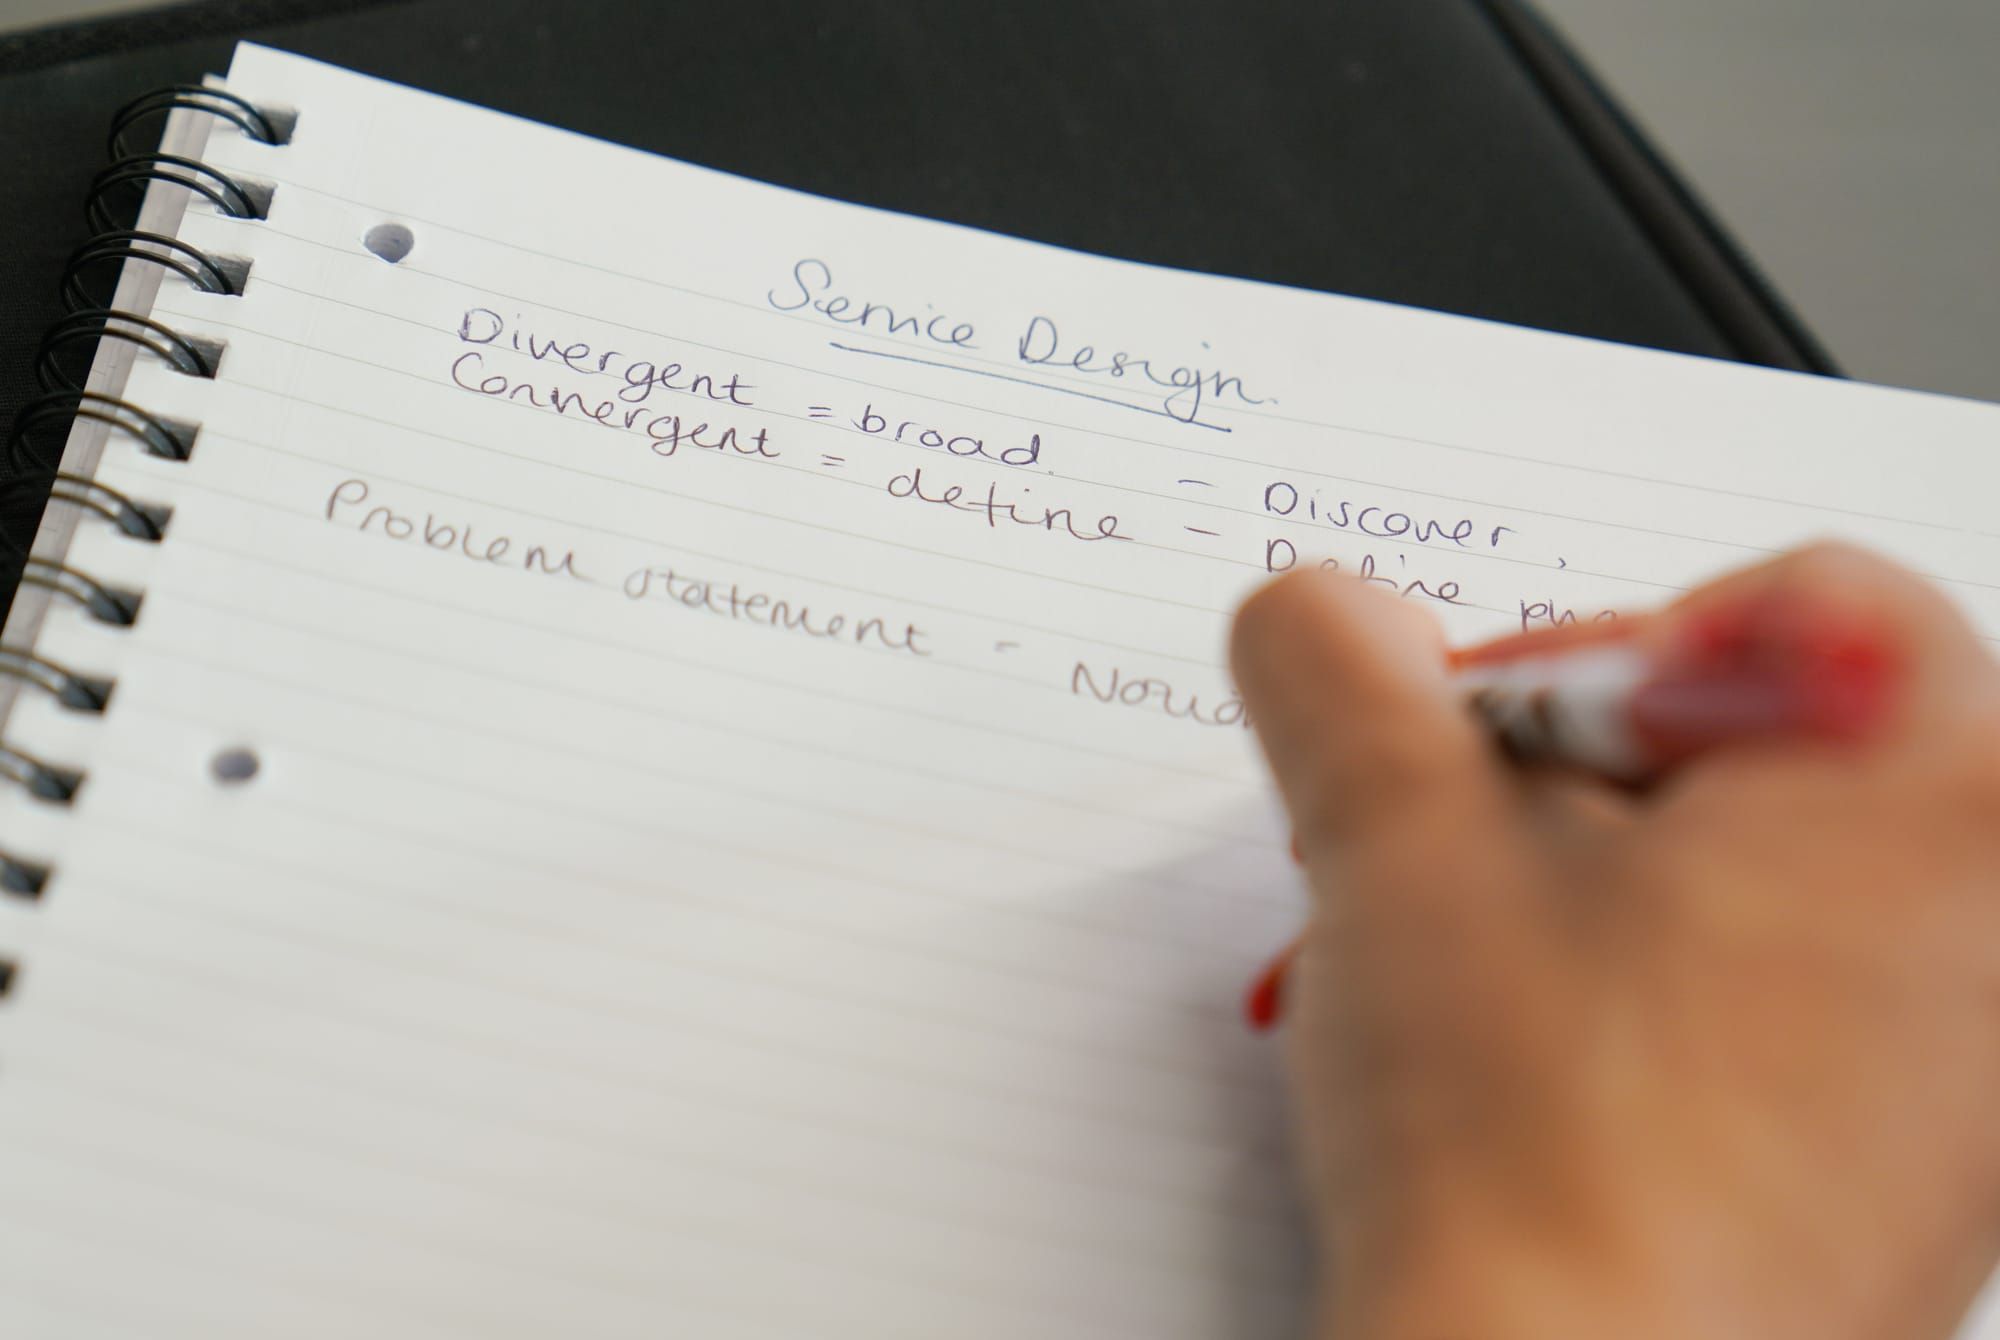 Service Design.
Divergent = broad. - Discover,
Convergent = define - Define
Problem statement -